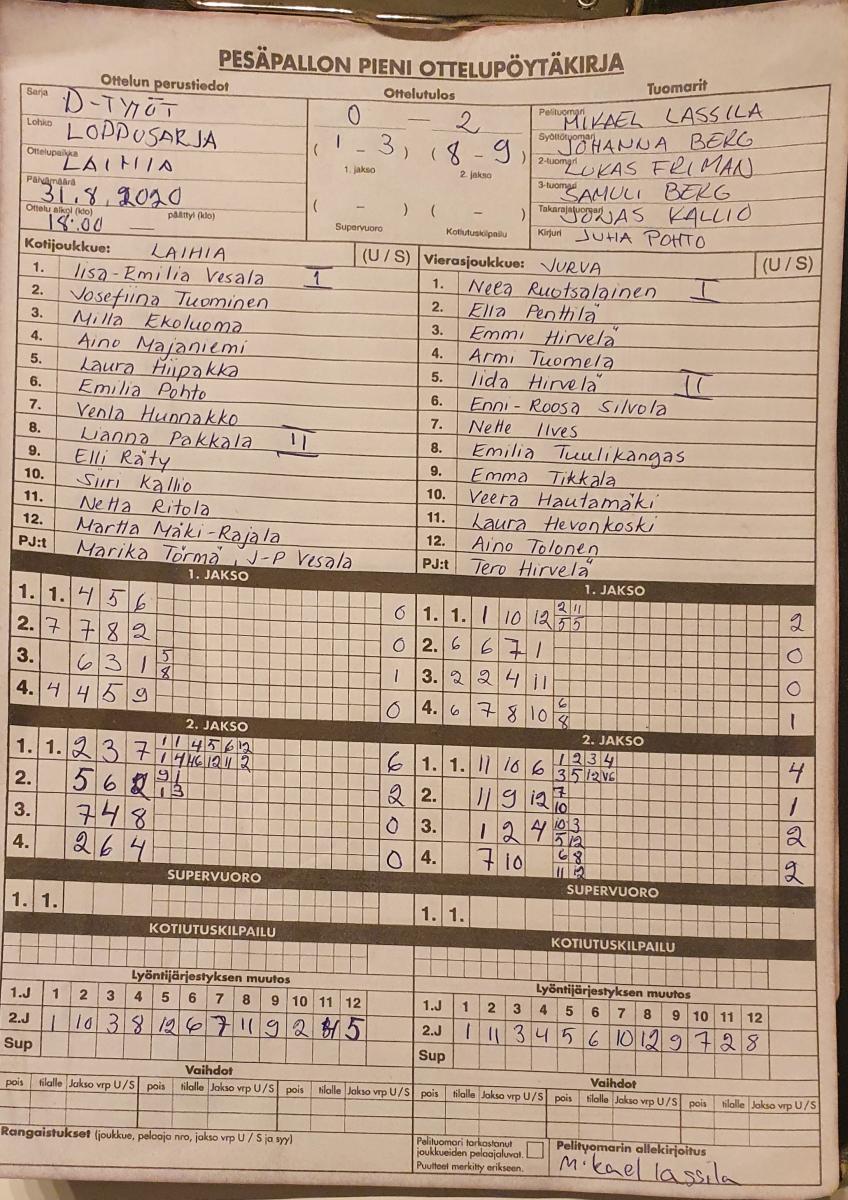 PESÄPALLON PIENI OTTELUPÖYTÄKIRJA
Ottelun perustiedot
Ottelutulos
Tuomarit
Sarja D-TYTÖT
Lohko LOPPUSARJA
Ottelupaikka LAIHIA
Päivämäärä 31.8.2020
Ottelu alkoi (klo) 18:00 päättyi (klo) —
0 — 2
( 1 - 3 ) ( 8 - 9 )
1. jakso 2. jakso
( - ) ( - )
Supervuoro Kotiutuskilpailu
Pelituomari MIKAEL LASSILA
Syöttötuomari JOHANNA BERG
2-tuomari LUKAS FRIMAN
3-tuomari SAMULI BERG
Takarajatuomari JONAS KALLIO
Kirjuri JUHA POHTO
Kotijoukkue: LAIHIA (U / S)
1. Iisa-Emilia Vesala I
2. Josefiina Tuominen
3. Milla Ekoluoma
4. Aino Majaniemi
5. Laura Hiipakka
6. Emilia Pohto
7. Venla Hunnakko
8. Lianna Pakkala II
9. Elli Räty
10. Siiri Kallio
11. Netta Ritola
12. Martta Mäki-Rajala
PJ:t Marika Törmä, J-P Vesala
Vierasjoukkue: JURVA (U / S)
1. Neea Ruotsalainen I
2. Ella Penttilä
3. Emmi Hirvelä
4. Armi Tuomela
5. Iida Hirvelä II
6. Enni-Roosa Silvola
7. Nette Ilves
8. Emilia Tuulikangas
9. Emma Tikkala
10. Veera Hautamäki
11. Laura Hevonkoski
12. Aino Tolonen
PJ:t Tero Hirvelä
1. JAKSO
1. 1. 4 5 6 0
2. 7 7 8 2 0
3. 6 3 1 5 8 1
4. 4 4 5 9 0
2. JAKSO
1. 1. 2 3 7 1 1 4 5 6 12 6
2. 5 6 9 1 1 3 2
3. 7 4 8 0
4. 2 6 4 0
SUPERVUORO
1. 1.
KOTIUTUSKILPAILU
1. JAKSO
1. 1. 1 10 12 2 11 5 5 2
2. 6 6 7 1 0
3. 2 2 4 11 0
4. 6 7 8 10 6 8 1
2. JAKSO
1. 1. 11 10 6 1 2 3 4 3 5 12 4
2. 11 9 12 7 10 1
3. 1 2 4 10 3 5 12 2
4. 7 10 6 8 11 12 2
SUPERVUORO
1. 1.
KOTIUTUSKILPAILU
Lyöntijärjestyksen muutos
1.J 1 2 3 4 5 6 7 8 9 10 11 12
2.J 1 10 3 8 12 6 7 11 9 2 4 5
Sup
Lyöntijärjestyksen muutos
1.J 1 2 3 4 5 6 7 8 9 10 11 12
2.J 1 11 3 4 5 6 10 12 9 7 2 8
Sup
Vaihdot
pois tilalle Jakso vrp U / S pois tilalle Jakso vrp U / S pois tilalle Jakso vrp U / S
Vaihdot
pois tilalle Jakso vrp U / S pois tilalle Jakso vrp U / S pois tilalle Jakso vrp U / S
Rangaistukset (joukkue, pelaaja nro, jakso vrp U / S ja syy)
Pelituomari tarkastanut
joukkueiden pelaajaluvat.
Puutteet merkitty erikseen.
Pelituomarin allekirjoitus
Mikael Lassila